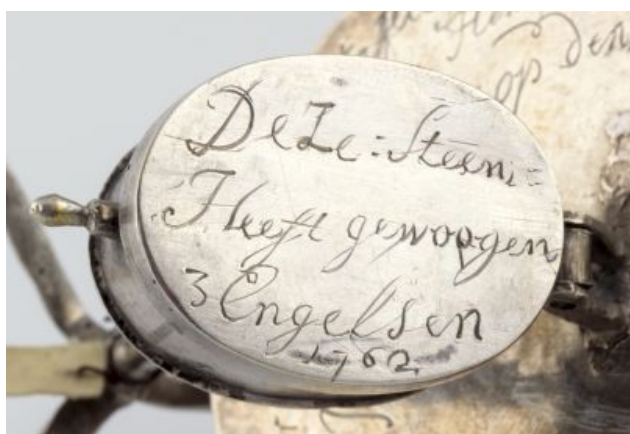 op den
DeZe : Steen :
Heeft gewoogen
3 Engelsen
1762